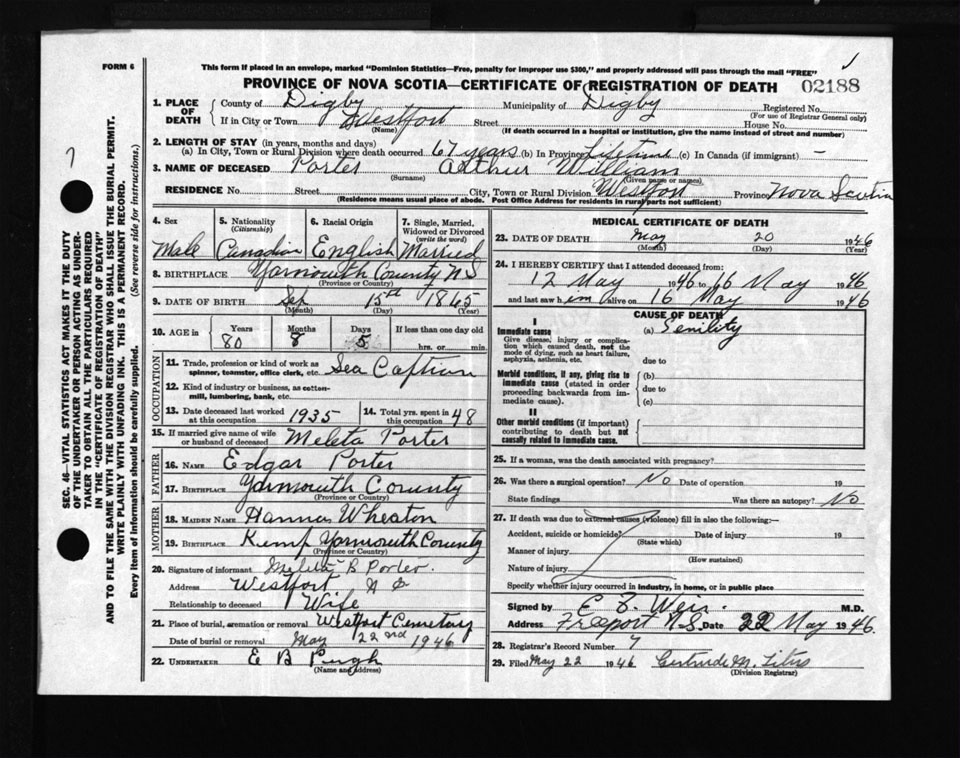 FORM 6
This form if placed in an envelope, marked "Dominion Statistics—Free, penalty for improper use $300," and properly addressed will pass through the mail "FREE"
PROVINCE OF NOVA SCOTIA—CERTIFICATE OF REGISTRATION OF DEATH 02188
1. PLACE OF DEATH
County of Digby Municipality of Digby Registered No.
(For use of Registrar General only)
If in City or Town Westport Street House No.
(Name) (If death occurred in a hospital or institution, give the name instead of street and number)
2. LENGTH OF STAY (in years, months and days)
(a) In City, Town or Rural Division where death occurred 67 years (b) In Province Lifetime (c) In Canada (if immigrant) —
3. NAME OF DECEASED Porter Arthur William
(Surname) (Given name or names)
RESIDENCE No. Street City, Town or Rural Division Westport Province Nova Scotia
(Residence means usual place of abode. Post Office Address for residents in rural parts not sufficient)
4. Sex 5. Nationality (Citizenship) 6. Racial Origin 7. Single, Married, Widowed or Divorced (write the word)
Male Canadian English Married
8. BIRTHPLACE Yarmouth County N S
(Province or Country)
9. DATE OF BIRTH Sep 15th 1865
(Month) (Day) (Year)
10. AGE in Years Months Days If less than one day old
80 8 5 hrs. or min.
OCCUPATION
11. Trade, profession or kind of work as spinner, teamster, office clerk, etc. Sea Captian
12. Kind of industry or business, as cotton-mill, lumbering, bank, etc.
13. Date deceased last worked at this occupation 1935 14. Total yrs. spent in this occupation 48
15. If married give name of wife or husband of deceased Meleta Porter
FATHER
16. NAME Edgar Porter
17. BIRTHPLACE Yarmouth County
(Province or Country)
MOTHER
18. MAIDEN NAME Wheaton
19. BIRTHPLACE Kemp Yarmouth County
(Province or Country)
20. Signature of informant Meleta B Porter.
Address Westport N S
Relationship to deceased Wife
21. Place of burial, cremation or removal Westport Cemetary
Date of burial or removal May 22nd 1946
22. UNDERTAKER E B Pugh
(Name and address)
MEDICAL CERTIFICATE OF DEATH
23. DATE OF DEATH May 20 1946
(Month) (Day) (Year)
24. I HEREBY CERTIFY that I attended deceased from:
12 May 1946 to 16 May 1946
and last saw him alive on 16 May 1946
CAUSE OF DEATH
I
Immediate cause (a) Senility
Give disease, injury or complication which caused death, not the mode of dying, such as heart failure, asphyxia, asthenia, etc.
due to
Morbid conditions, if any, giving rise to immediate cause (stated in order proceeding backwards from immediate cause).
(b)
due to
(c)
II
Other morbid conditions (if important) contributing to death but not causally related to immediate cause.
25. If a woman, was the death associated with pregnancy?
26. Was there a surgical operation? No Date of operation 19
State findings Was there an autopsy? No
27. If death was due to external causes (violence) fill in also the following:—
Accident, suicide or homicide? Date of injury 19
(State which)
Manner of injury
(How sustained)
Nature of injury
Specify whether injury occurred in industry, in home, or in public place
Signed by E. B. Weir. M.D.
Address Freeport N.S. Date 22 May 1946.
28. Registrar's Record Number 7
29. Filed May 22 1946 Gertrude M. Titus
(Division Registrar)
SEC. 46—VITAL STATISTICS ACT MAKES IT THE DUTY
OF THE UNDERTAKER OR PERSON ACTING AS UNDER-
TAKER TO OBTAIN ALL THE PARTICULARS REQUIRED
IN THE "CERTIFICATE OF REGISTRATION OF DEATH"
AND TO FILE THE SAME WITH THE DIVISION REGISTRAR WHO SHALL ISSUE THE BURIAL PERMIT.
WRITE PLAINLY WITH UNFADING INK. THIS IS A PERMANENT RECORD.
Every item of information should be carefully supplied. (See reverse side for instructions.)
7